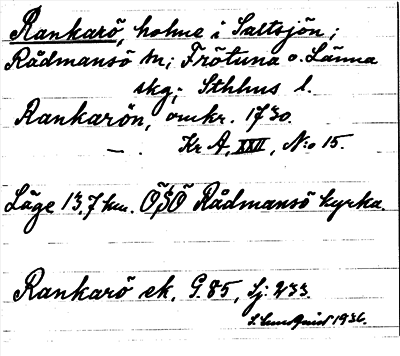 Rankarö, holme i Saltsjön;
Rådmansö sn; Frötuna o. Länna
skg; Sthlms l.
Rankarön, omkr. 1730.
— . Kr A, XXII, N:o 15.
Läge 13,7 km. ÖSÖ Rådmansö kyrka.
Rankarö ek. G. 85, Sj: 233.
1936.